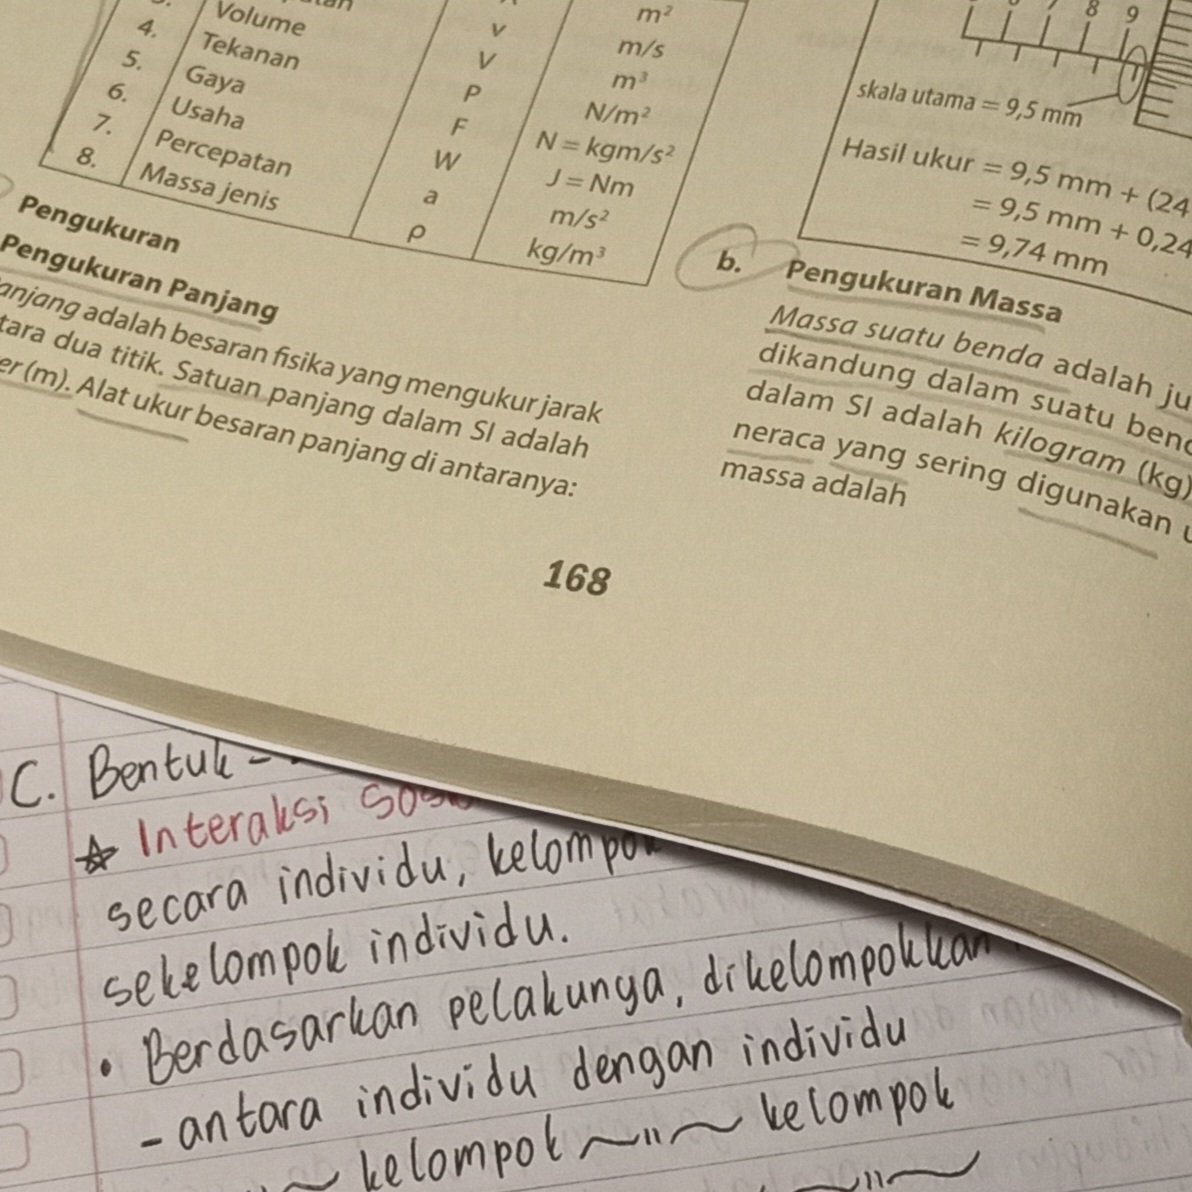 4. Volume v m²
5. Tekanan V m/s
6. Gaya P m³
7. Usaha F N/m²
8. Percepatan W N = kgm/s²
Massa jenis a J = Nm
ρ m/s²
kg/m³
Pengukuran
Pengukuran Panjang
anjang adalah besaran fisika yang mengukur jarak
tara dua titik. Satuan panjang dalam SI adalah
er (m). Alat ukur besaran panjang di antaranya:
8 9
skala utama = 9,5 mm
Hasil ukur = 9,5 mm + (24
= 9,5 mm + 0,24
= 9,74 mm
b. Pengukuran Massa
Massa suatu benda adalah ju
dikandung dalam suatu ben
dalam SI adalah kilogram (kg)
neraca yang sering digunakan
massa adalah
168
C. Bentuk -
☆ Interaksi Sos
secara individu, kelompok
sekelompok individu.
• Berdasarkan pelakunya, dikelompokkan
- antara individu dengan individu
kelompok ~"~ kelompok
~"~